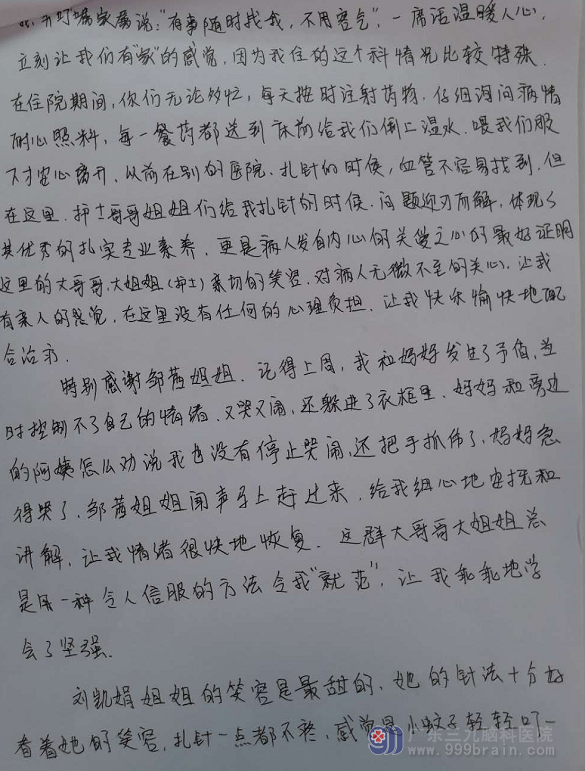 并叮嘱家属说:"有事随时找我,不用客气",一席话温暖人心,
立刻让我们有"家"的感觉,因为我住的这个科情况比较特殊.
在住院期间,你们无论多忙,每天按时注射药物,仔细询问病情
耐心照料,每一餐药都送到床前给我们倒上温水.喂我们服
下才安心离开.从前在别的医院,扎针的时候,血管不容易找到.但
在这里.护士哥哥姐姐们给我扎针的时候.问题迎刃而解,体现了
其优秀的扎实专业素养.更是病人发自内心的关爱之心的最好证明
这里的大哥哥,大姐姐(护士)亲切的笑容,对病人无微不至的关心,让我
有亲人的感觉,在这里没有任何的心理负担.让我快乐愉快地配
合治疗.
特别感谢邹茜姐姐.记得上周,我和妈妈发生了矛盾,当
时控制不了自己的情绪.又哭又闹,还躲进了衣柜里.妈妈和旁边
的阿姨怎么劝说我也没有停止哭闹,还把手抓伤了,妈妈急
得哭了.邹茜姐姐闻声马上赶过来.给我细心地安抚和
讲解,让我情绪很快地恢复.这群大哥哥大姐姐总
是用一种令人信服的方法令我"就范",让我乖乖地学
会了坚强.
刘凯娟姐姐的笑容是最甜的,她的针法十分好
看着她的笑容,扎针一点都不疼,感觉是小蚊子轻轻叮一
广东三九脑科医院
www.999brain.com